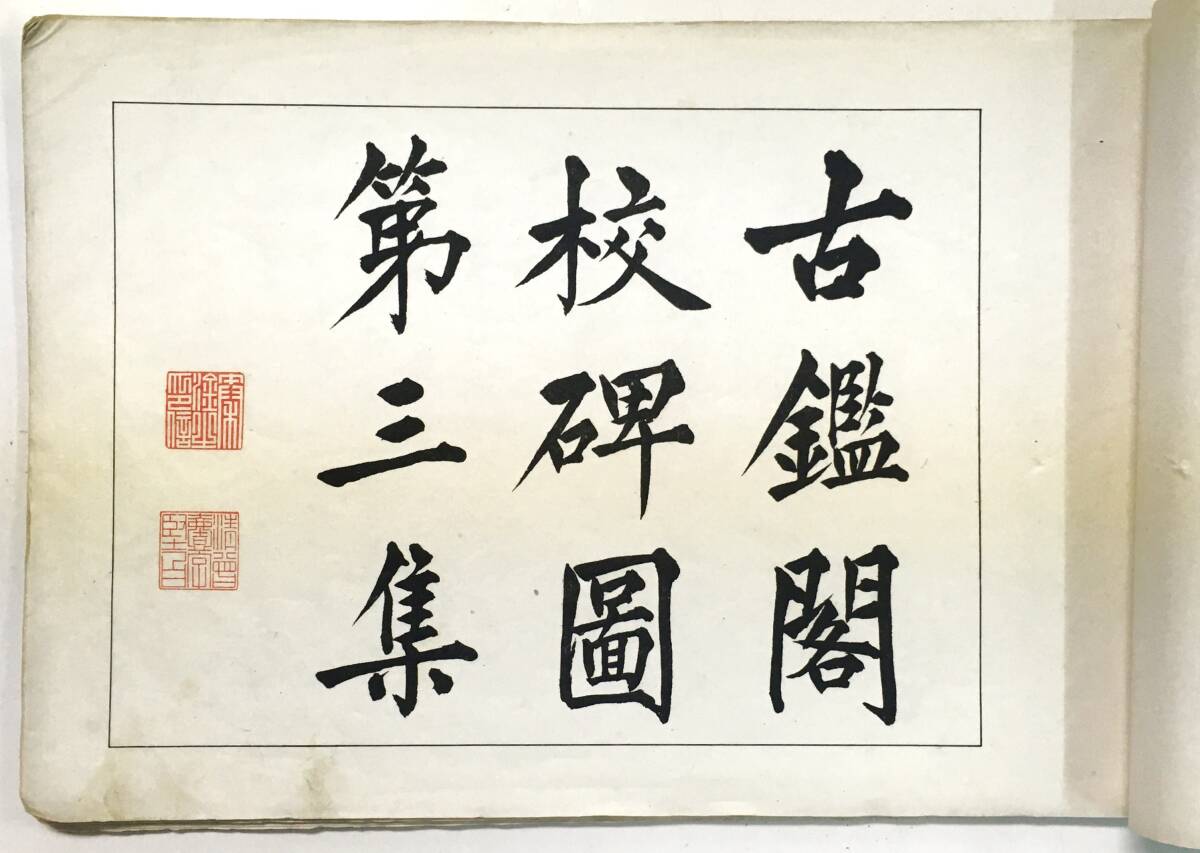 古鑑閣
校碑圖
第三集